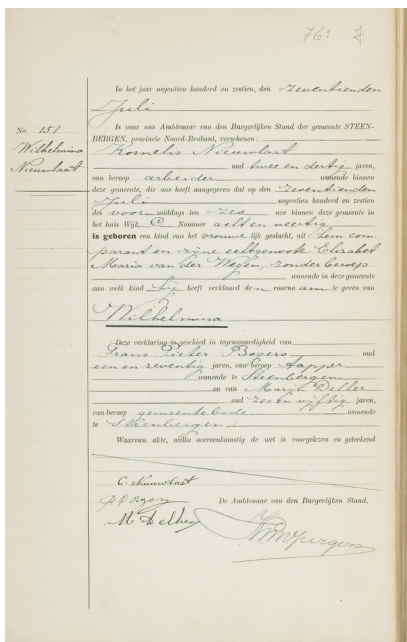 76
No. 151
Wilhelmina
Nieuwlaat
In het jaar negentien honderd en zestien, den zeventienden
Juli
Is voor ons Ambtenaar van den Burgerlijken Stand der gemeente STEEN-
BERGEN, provincie Noord-Brabant, verschenen:
Kornelis Nieuwlaat
oud twee en dertig jaren,
van beroep arbeider wonende binnen
deze gemeente, die ons heeft aangegeven dat op den zeventienden
Juli negentien honderd en zestien
des voor middags ten zes ure binnen deze gemeente in
het huis Wijk C Nummer acht en veertig
is geboren een kind van het vrouwelijk geslacht, uit hem com
parant en zijne echtgenoote Elizabet
Maria van der Wegen, zonder beroep
wonende in deze gemeente
aan welk kind hij heeft verklaard den voornaam te geven van
Wilhelmina
Deze verklaring is geschied in tegenwoordigheid van
Frans Pieter Bogers oud
een en zeventig jaren, van beroep tapper
wonende te Steenbergen
en van Marijn Delhez
oud zes en vijftig jaren,
van beroep gemeentebode wonende
te Steenbergen
Waarvan akte, welke overeenkomstig de wet is voorgelezen en geteekend
C. Nieuwlaat
Bogers
De Ambtenaar van den Burgerlijken Stand,
M Delhez